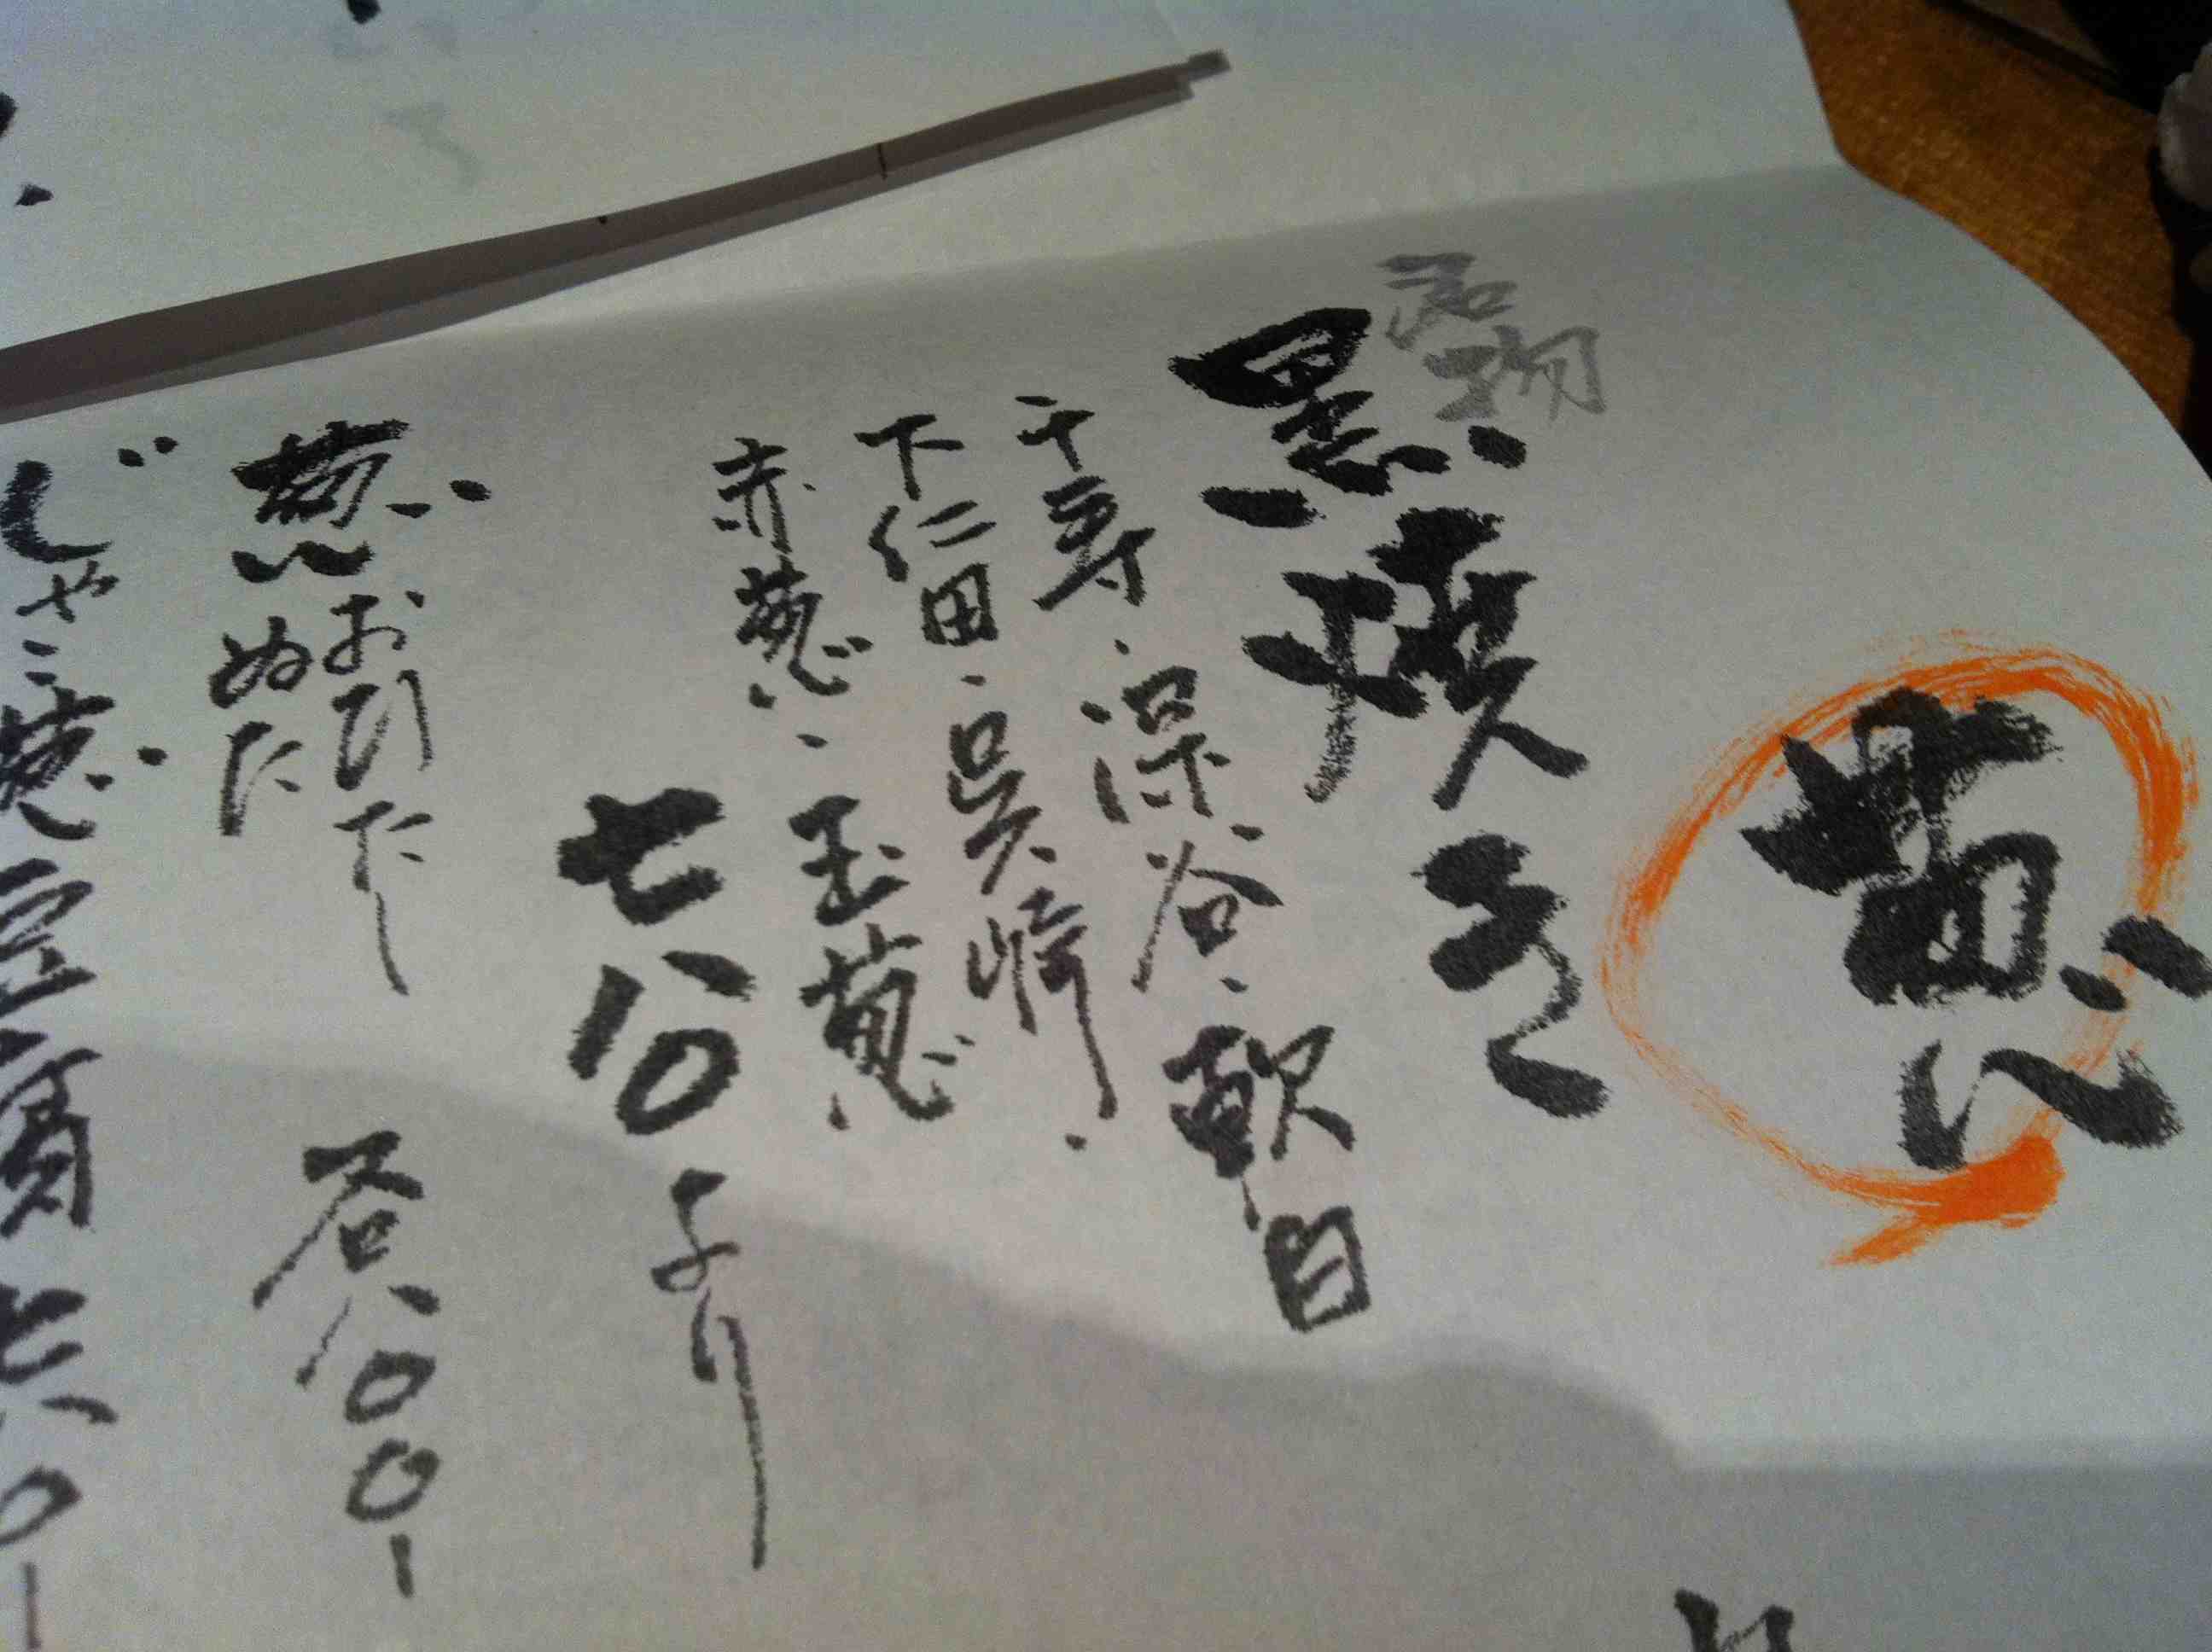 葱
名物
黒焼き
千寿・深谷・軟白
下仁田・呉崎・
赤葱・玉葱
七八〇より
葱おひたし
ぬた
各八〇〇-
じゃこ葱豆腐 七八〇-